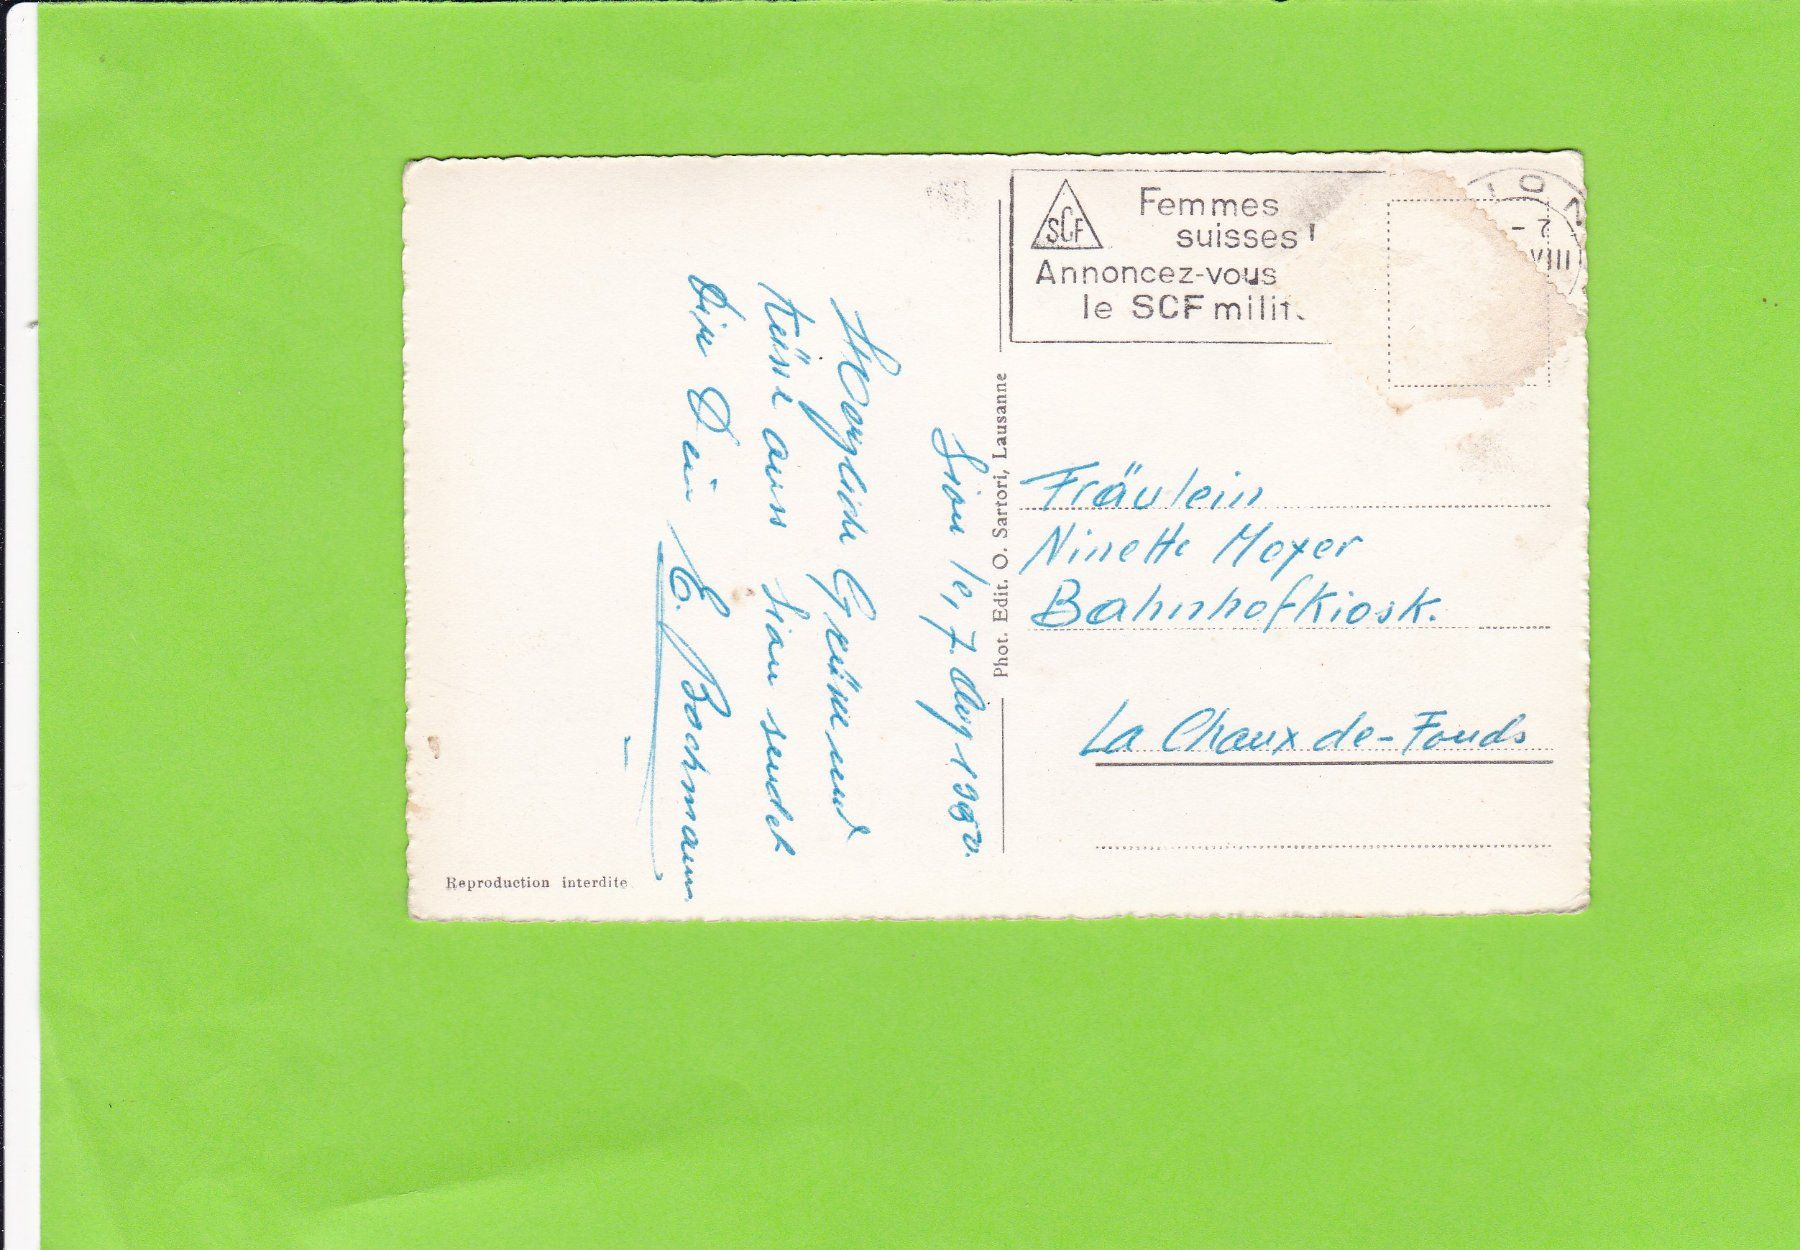 Femmes
suisses!
SCF
Annoncez-vous
le SCF milit
ION
- 7
VIII
Sion le, 7. Aug 1950.
Herzliche Grüsse und
Küsse aus Sion sendet
Dir Dein E. Bachmann
Phot. Edit. O. Sartori, Lausanne
Fräulein
Ninette Moxer
Bahnhofkiosk.
La Chaux de-Fonds
Reproduction interdite